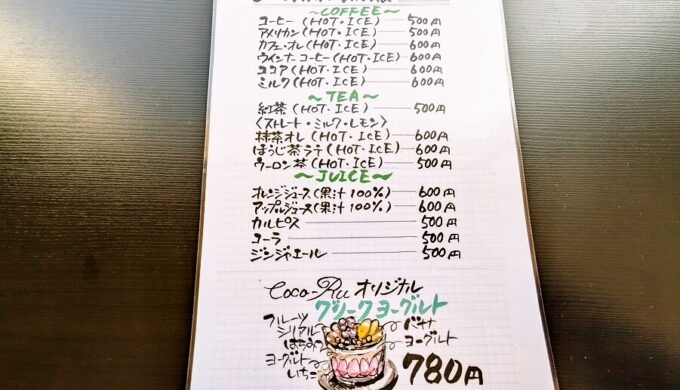 ~COFFEE~
コーヒー (HOT・ICE) 500円
アメリカン (HOT・ICE) 500円
カフェ・オレ (HOT・ICE) 600円
ウインナーコーヒー (HOT・ICE) 600円
ココア (HOT・ICE) 600円
ミルク (HOT・ICE) 600円
~TEA~
紅茶 (HOT・ICE) 500円
〈ストレート・ミルク・レモン〉
抹茶オレ (HOT・ICE) 600円
ほうじ茶ラテ (HOT・ICE) 600円
ウーロン茶 (HOT・ICE) 500円
~JUICE~
オレンジジュース (果汁100%) 600円
アップルジュース (果汁100%) 600円
カルピス 500円
コーラ 500円
ジンジャエール 500円
Coco-Ru オリジナル
グリークヨーグルト
フルーツ
シリアル
はちみつ
ヨーグルト
いちご
バナナ
ヨーグルト
780円